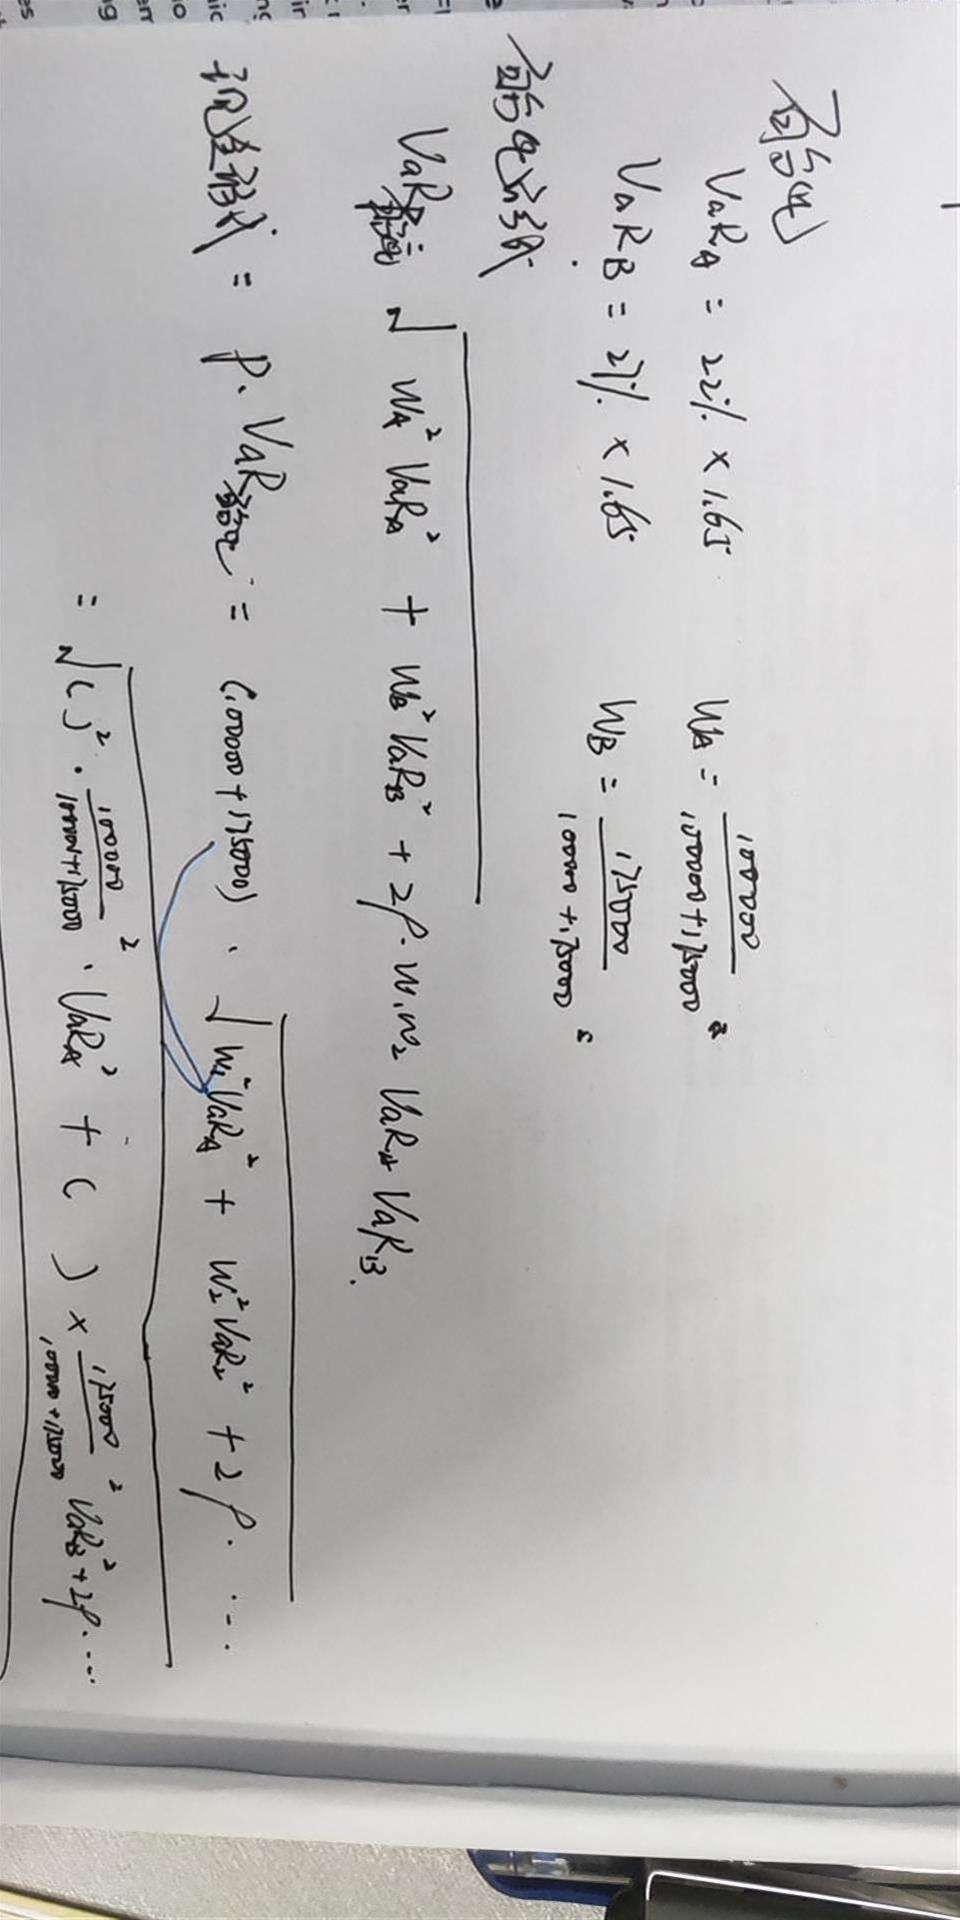 百分比
VaR_A = 22% × 1.65 W_A = 100000 / (100000+175000)
VaR_B = 27% × 1.65 W_B = 175000 / (100000+175000)
百分比形式
VaR √(W_A² VaR_A² + W_B² VaR_B² + 2ρ·W₁W₂ VaR_A VaR_B.
形式 = P·VaR百分比 = (100000+175000) · √(W₁²VaR_A² + W₂²VaR₂² + 2ρ. ...
= √( )² · (100000 / (100000+175000))² · VaR_A² + ( ) × (175000 / (100000+175000))² VaR_B² + 2ρ. ...